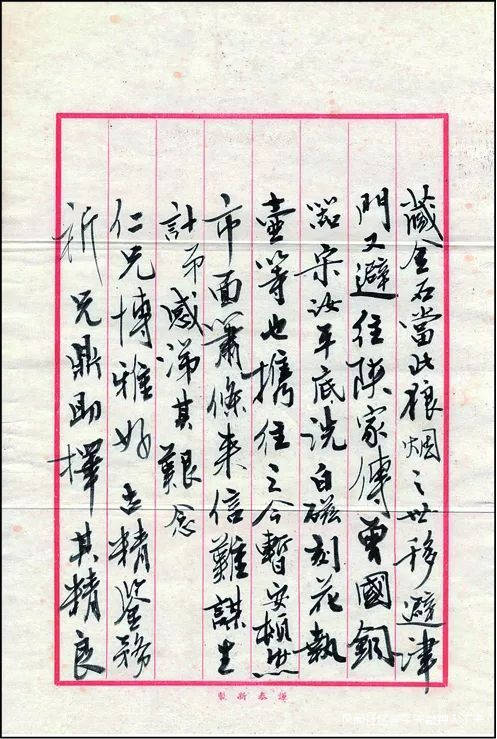 藏金石當此狼烟之世移避津
門又避往陳家傳曾國銅
器宋汝平底洗白磁刻花執
壺等也携往之今暫安想然
市面蕭條来信難謀生
計弟感涕其艱念
仁兄博雅好古精鉴務
祈 兄鼎助擇其精良
護泰新製